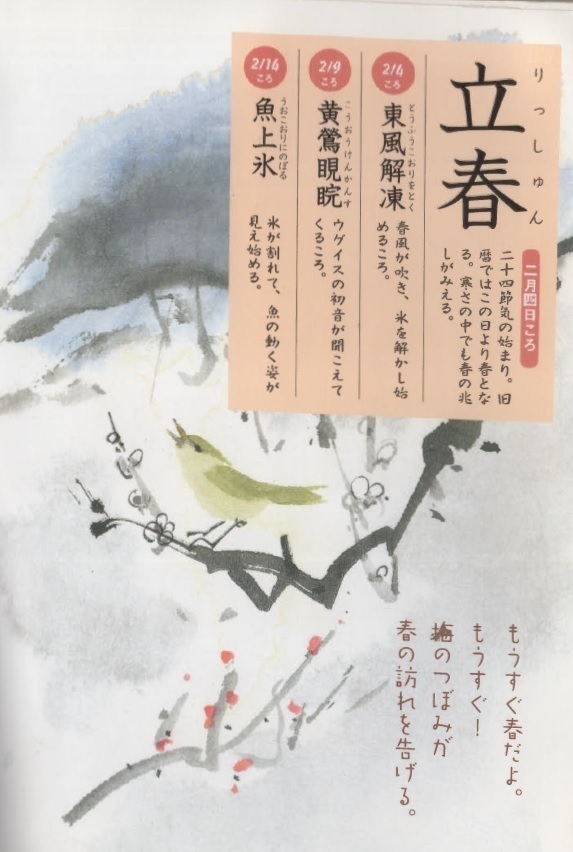 立春
りっしゅん
二月四日ころ
二十四節気の始まり。旧
暦ではこの日より春とな
る。寒さの中でも春の兆
しがみえる。
2/4
ころ
東風解凍
とうふうこおりをとく
春風が吹き、氷を解かし始
めるころ。
2/9
ころ
黄鶯睍睆
こうおうけんかんす
ウグイスの初音が聞こえて
くるころ。
2/14
ころ
魚上氷
うおこおりにのぼる
氷が割れて、魚の動く姿が
見え始める。
もうすぐ春だよ。
もうすぐ！
梅のつぼみが
春の訪れを告げる。